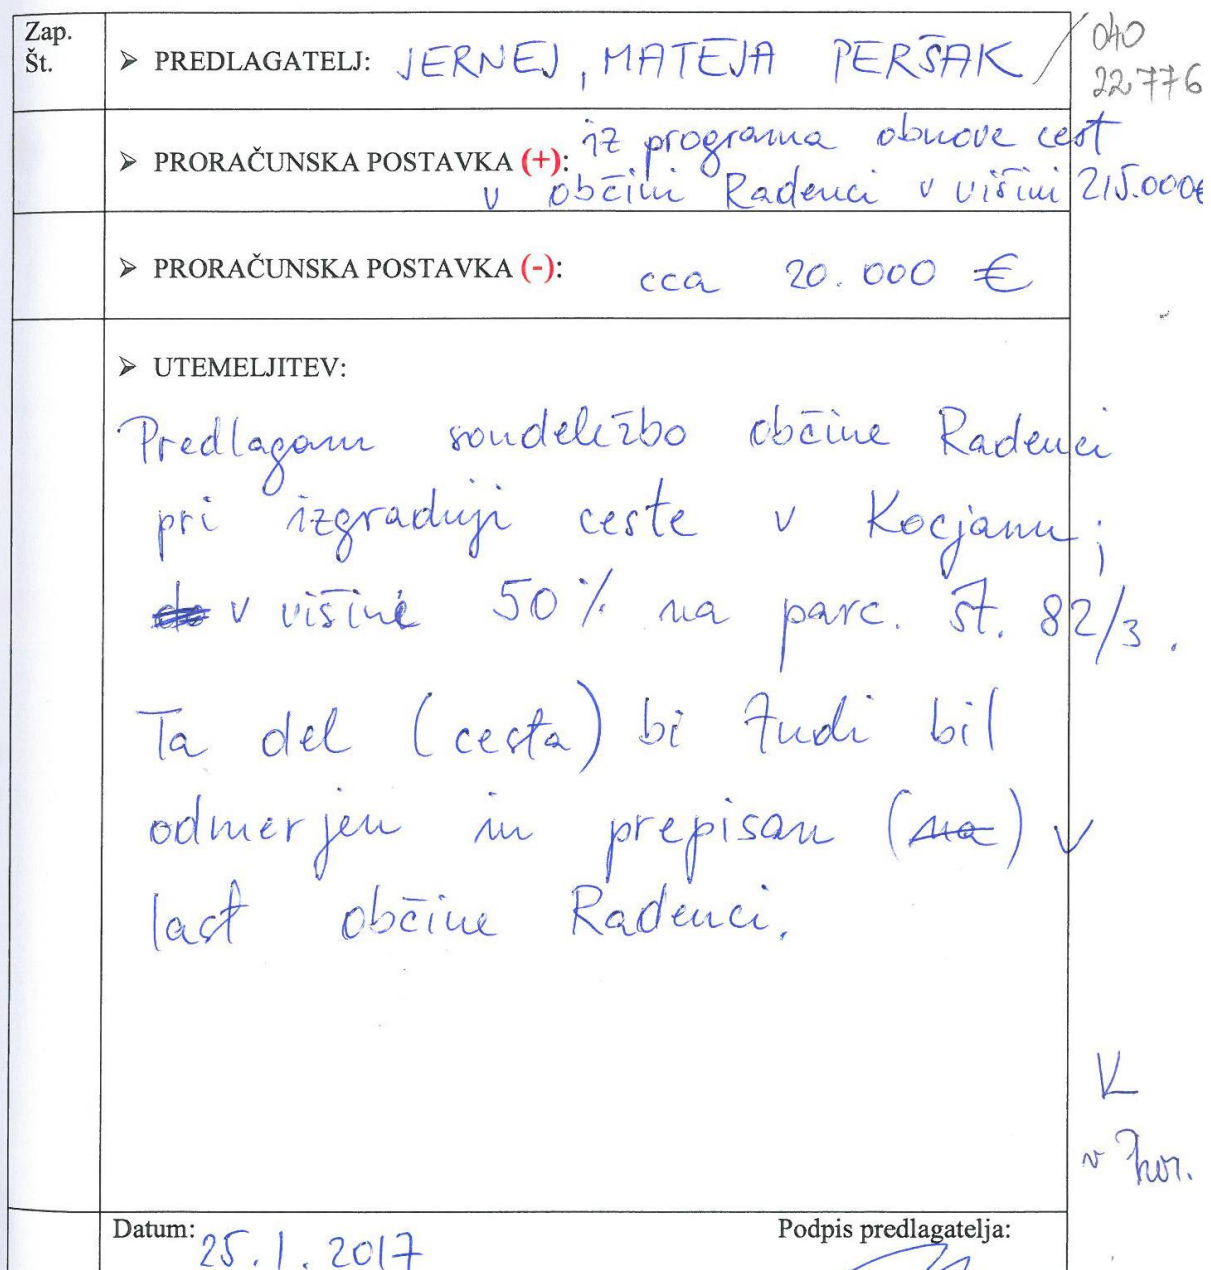 Zap.
Št.
➢ PREDLAGATELJ: JERNEJ, MATEJA PERŠAK / 040
22776
➢ PRORAČUNSKA POSTAVKA (+): iz programa obnove cest
v občini Radenci v višini 215.000€
➢ PRORAČUNSKA POSTAVKA (-): cca 20.000 €
➢ UTEMELJITEV:
Predlagam soudeležbo občine Radenci
pri izgradnji ceste v Kocjanu;
v višini 50% na parc. št. 82/3.
Ta del (cesta) bi tudi bil
odmerjen in prepisan (na) v
last občine Radenci.
K
Datum: 25.1.2017
Podpis predlagatelja: